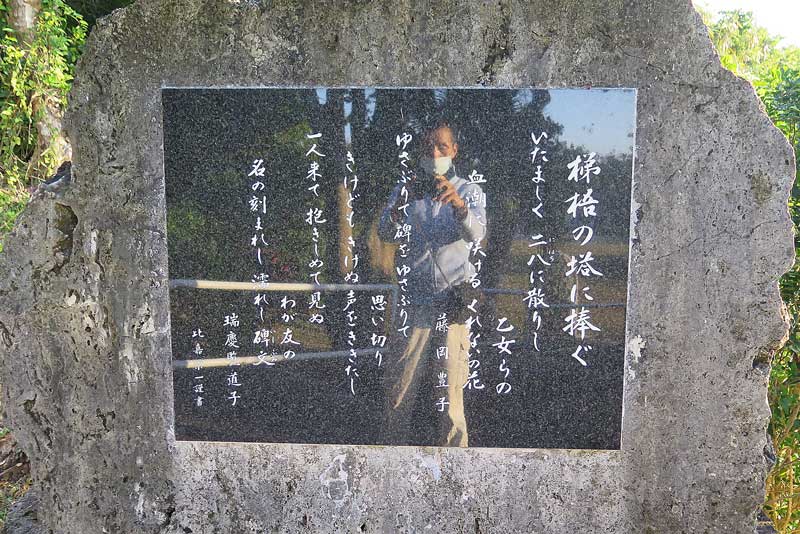 梯梧の塔に捧ぐ
いたましく 二八に散りし
乙女らの
血潮に咲ける くれないの花
藤岡豊子
ゆさぶりて 碑をゆさぶりて
思い切り
きけどもきけぬ 声をききたし
一人来て 抱きしめて見ぬ
わが友の
名の刻まれし 濡れし碑文
瑞慶覧道子